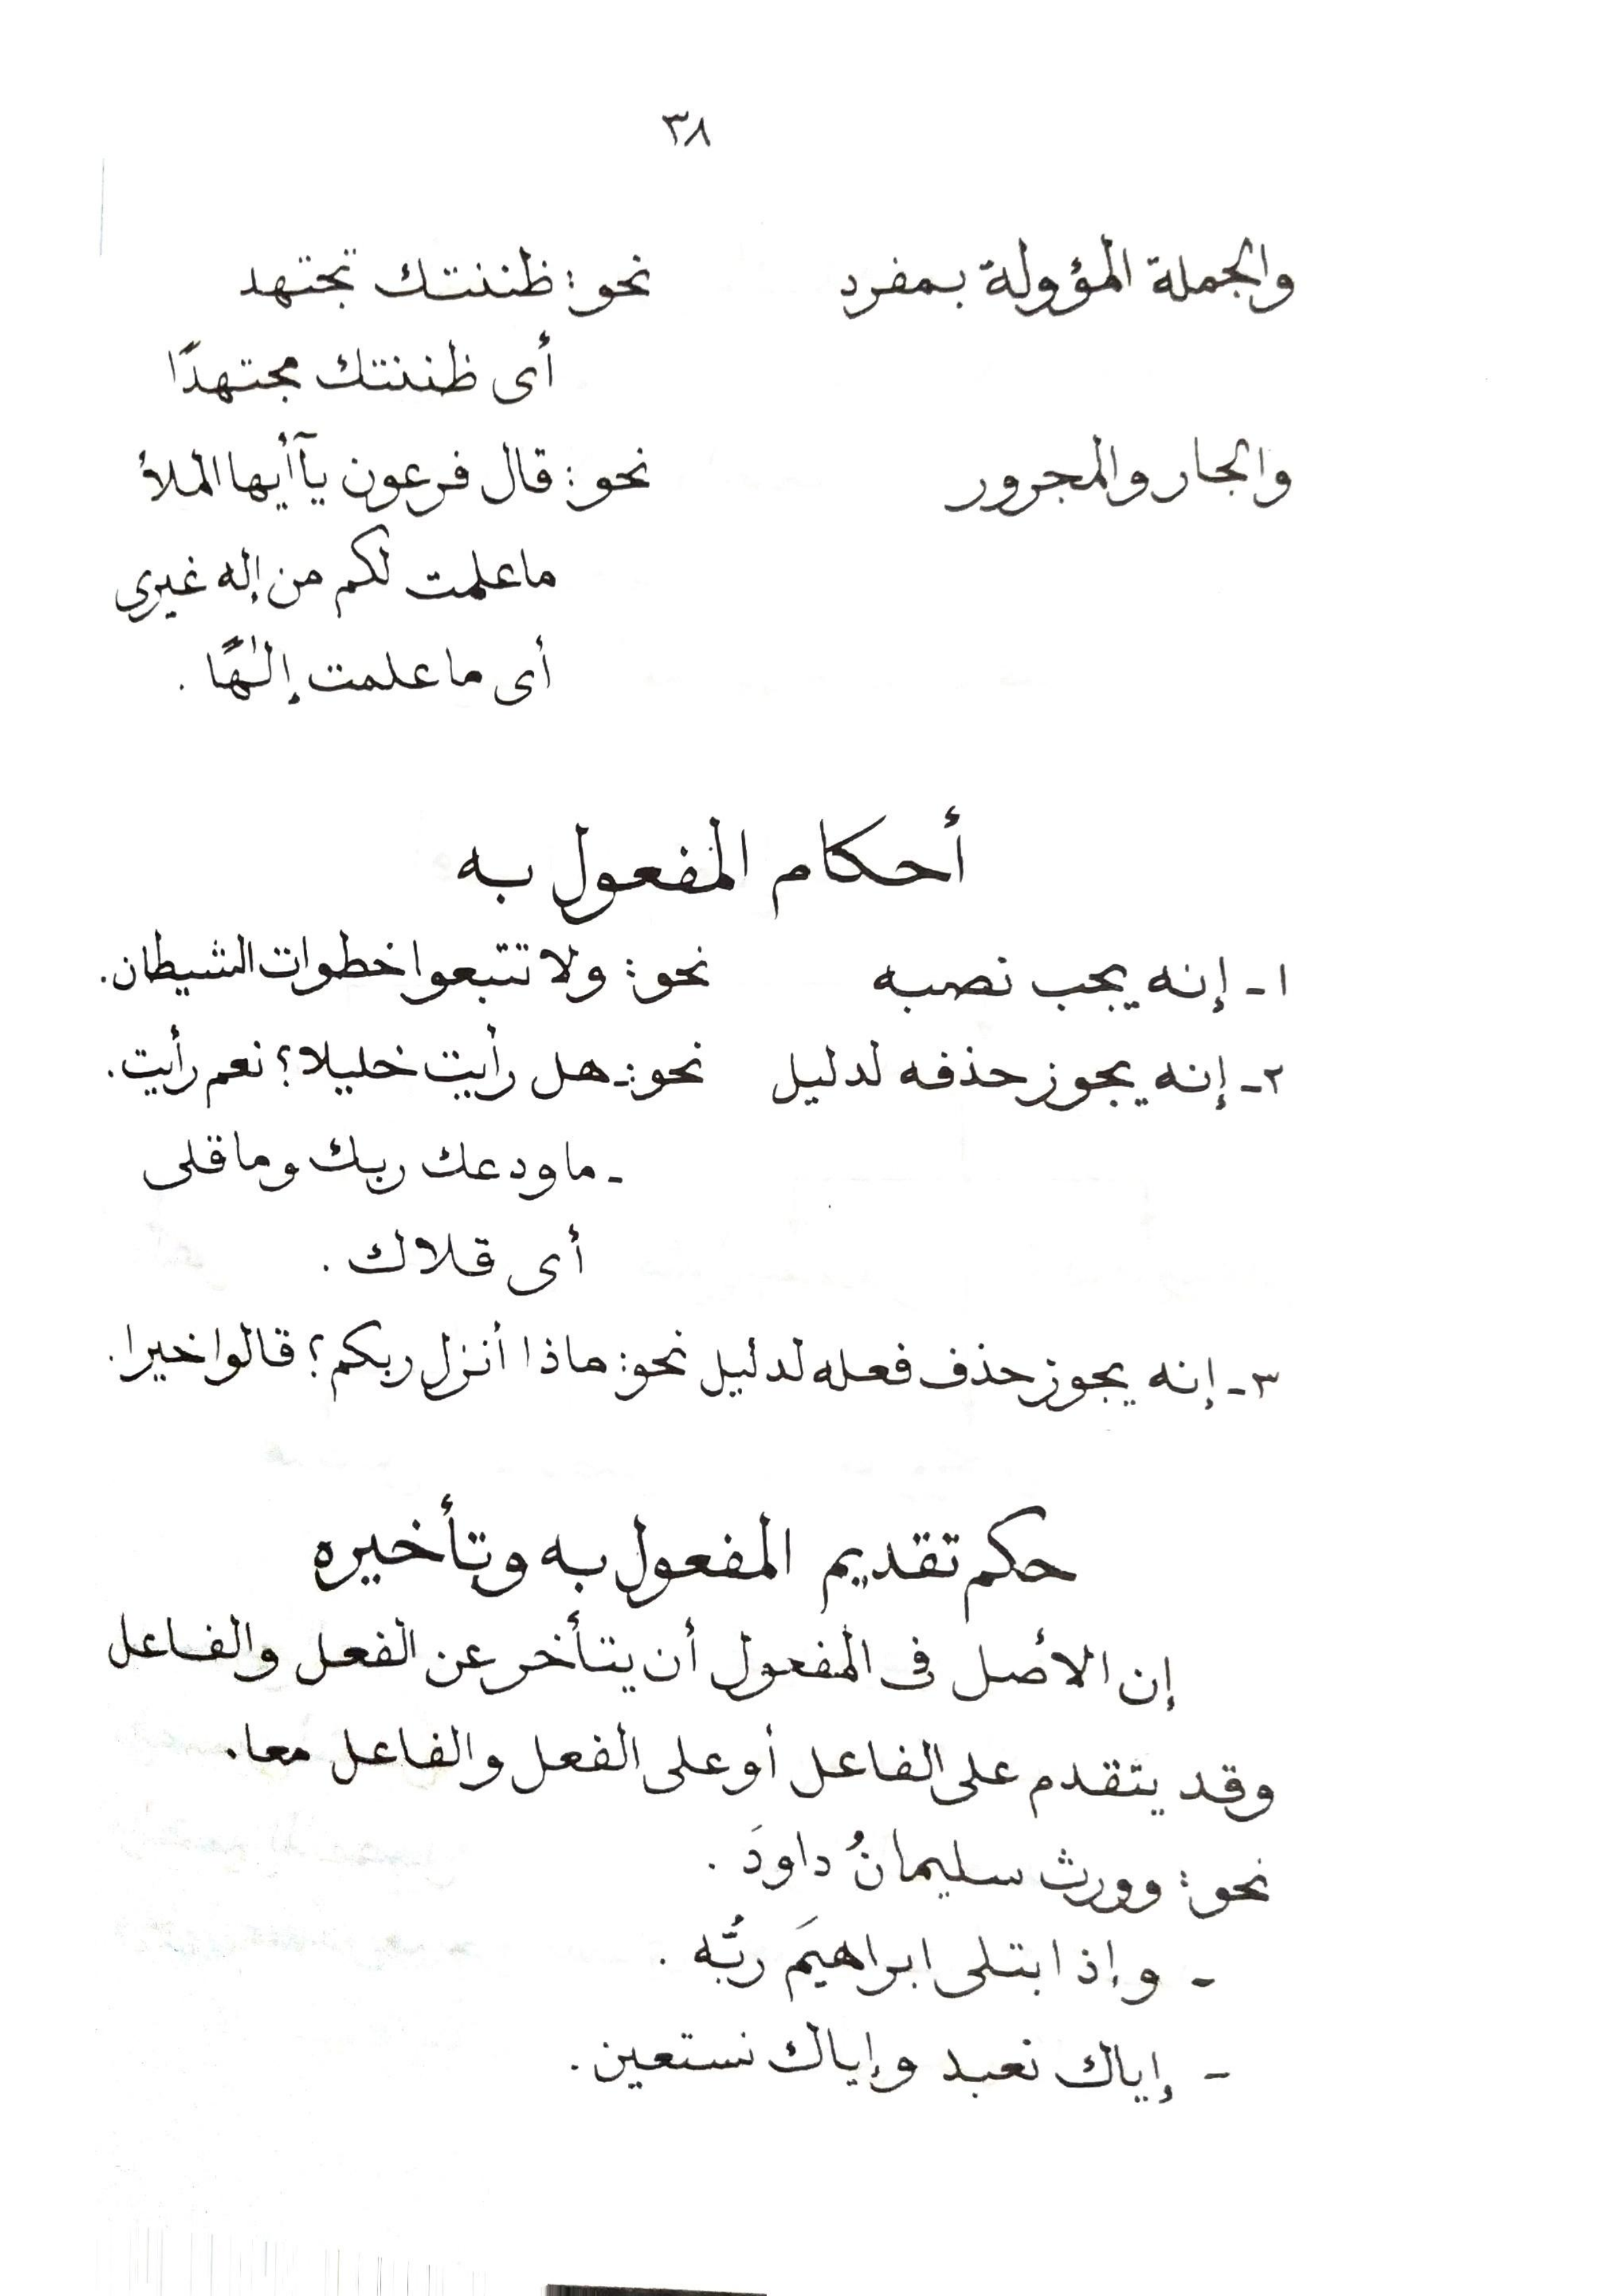 ٣٨
والجملة المؤولة بمفرد نحو: ظننتك تجتهد
أى ظننتك مجتهدًا
والجار والمجرور نحو: قال فرعون يآأيها الملأ
ماعلمت لكم من إله غيرى
أى ماعلمت إلٰهًا .
أحكام المفعول به
١ - إنه يجب نصبه نحو: ولا تتبعوا خطوات الشيطان.
٢ - إنه يجوز حذفه لدليل نحو: - هل رأيت خليلا؟ نعم رأيت.
- ماودعك ربك وماقلى
أى قلاك .
٣ - إنه يجوز حذف فعله لدليل نحو: ماذا أنزل ربكم؟ قالوا خيرا.
حكم تقديم المفعول به وتأخيره
إن الأصل فى المفعول أن يتأخر عن الفعل والفاعل
وقد يتقدم على الفاعل أو على الفعل والفاعل معا.
نحو: وورث سليمانُ داودَ .
- وإذ ابتلى ابراهيمَ ربُّه .
- إياك نعبد وإياك نستعين.